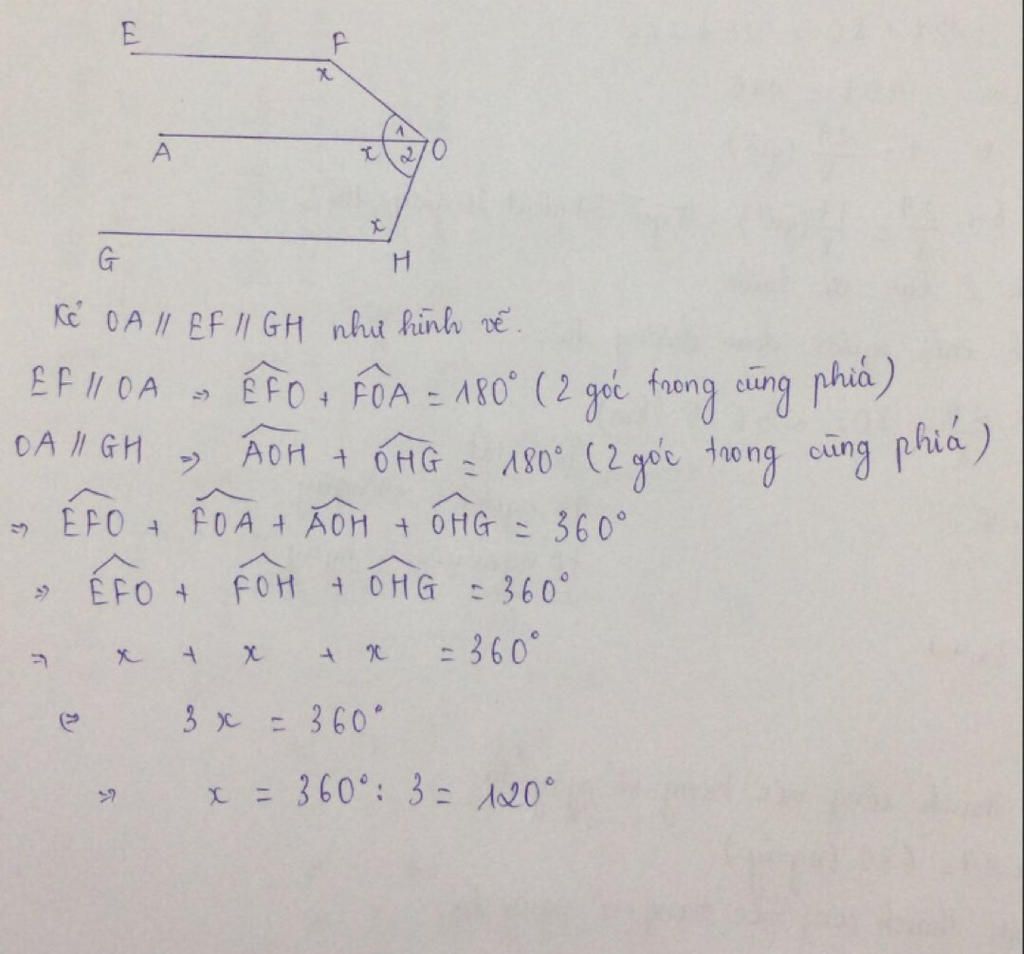 E F
x
1
A x 2 O
x
G H
Kẻ OA // EF // GH như hình vẽ.
EF // OA => EFO + FOA = 180° (2 góc trong cùng phiá)
OA // GH => AOH + OHG = 180° (2 góc trong cùng phiá)
=> EFO + FOA + AOH + OHG = 360°
=> EFO + FOH + OHG = 360°
=> x + x + x = 360°
<=> 3x = 360°
=> x = 360° : 3 = 120°